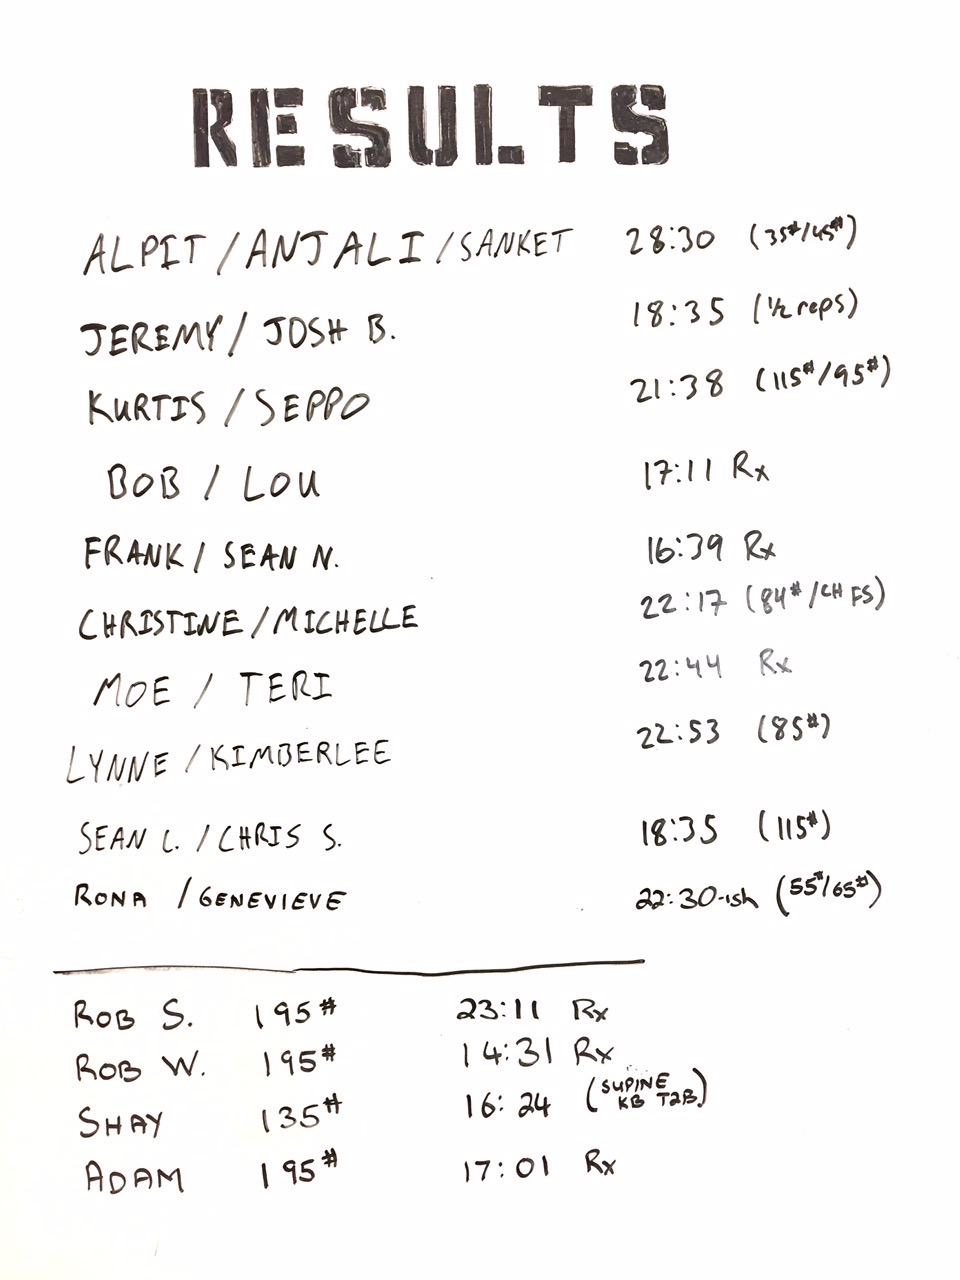 RESULTS
ALPIT / ANJALI / SANKET 28:30 (35#/45#)
JEREMY / JOSH B. 18:35 (1/2 reps)
KURTIS / SEPPO 21:38 (115#/95#)
BOB / LOU 17:11 Rx
FRANK / SEAN N. 16:39 Rx
CHRISTINE / MICHELLE 22:17 (84#/CH FS)
MOE / TERI 22:44 Rx
LYNNE / KIMBERLEE 22:53 (85#)
SEAN L. / CHRIS S. 18:35 (115#)
RONA / GENEVIEVE 22:30-ish (55#/65#)
ROB S. 195# 23:11 Rx
ROB W. 195# 14:31 Rx
SHAY 135# 16:24 (SUPINE
KB T2B)
ADAM 195# 17:01 Rx